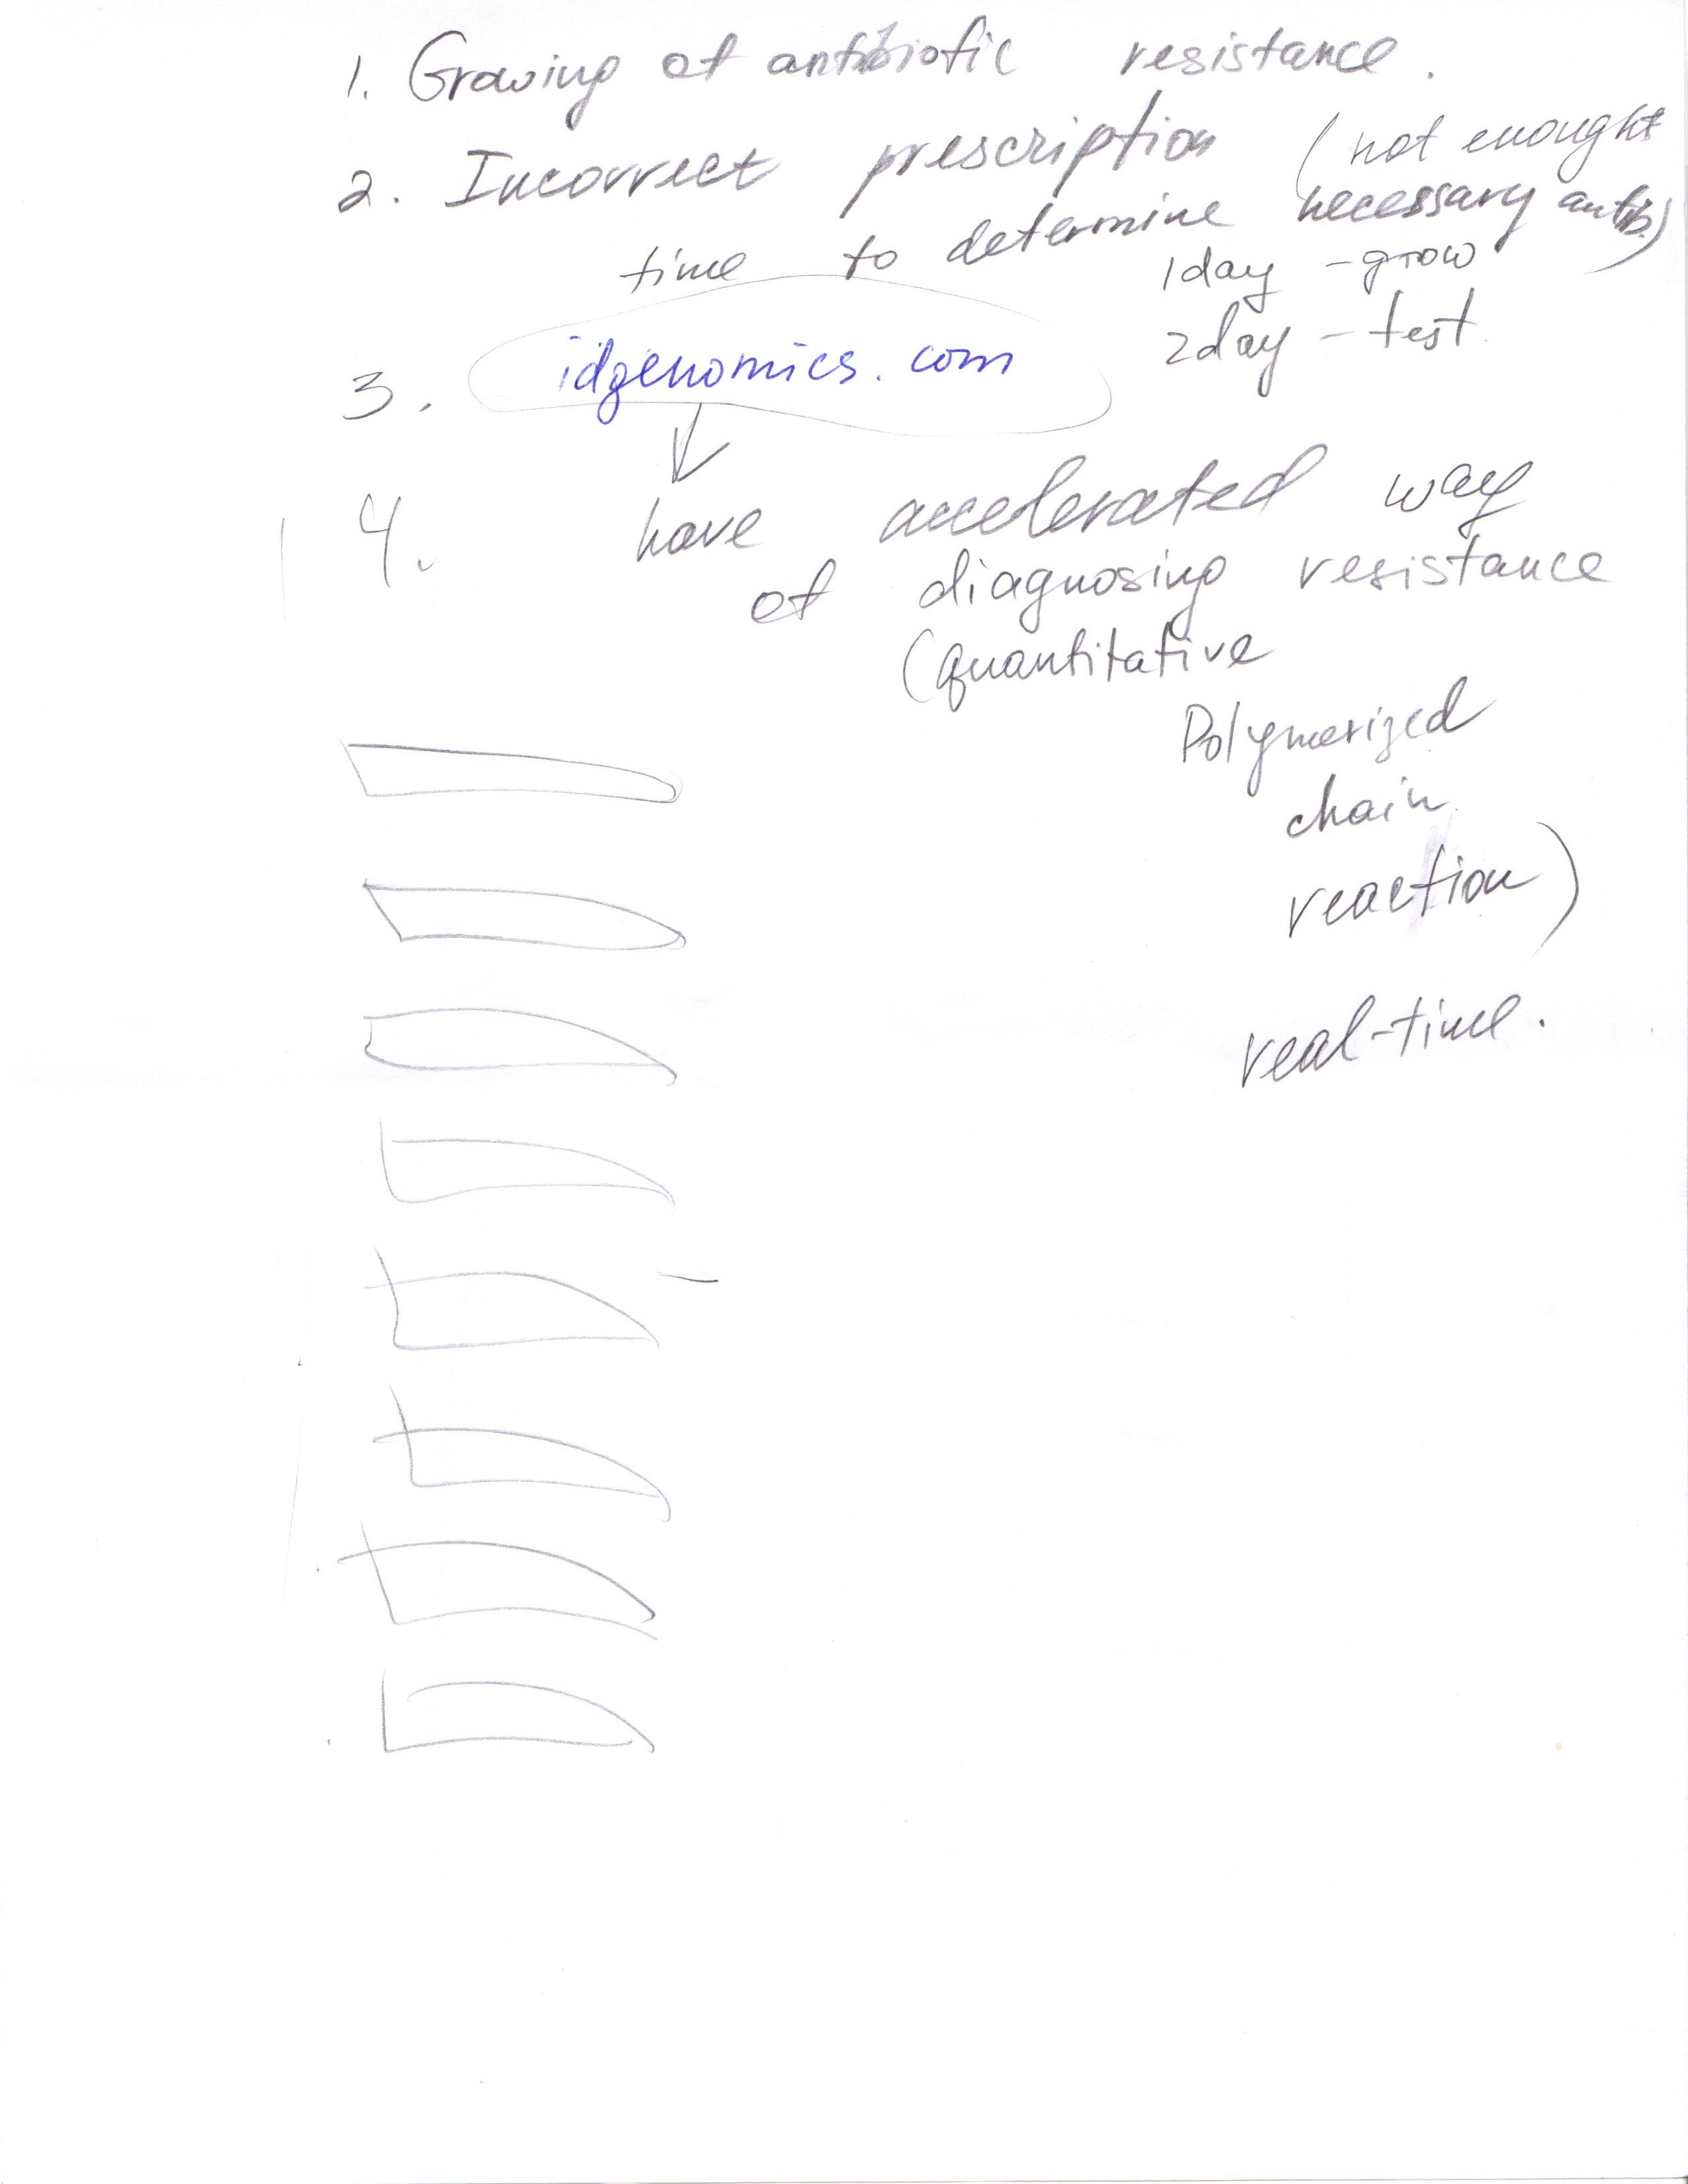 1. Growing of antibiotic resistance.
2. Incorrect prescription (not enought
time to determine necessary antib.)
1day - grow
2day - test.
3. idgenomics.com
4. have accelerated way
of diagnosing resistance
(quantitative
Polymerized
chain
reaction)
real-time.